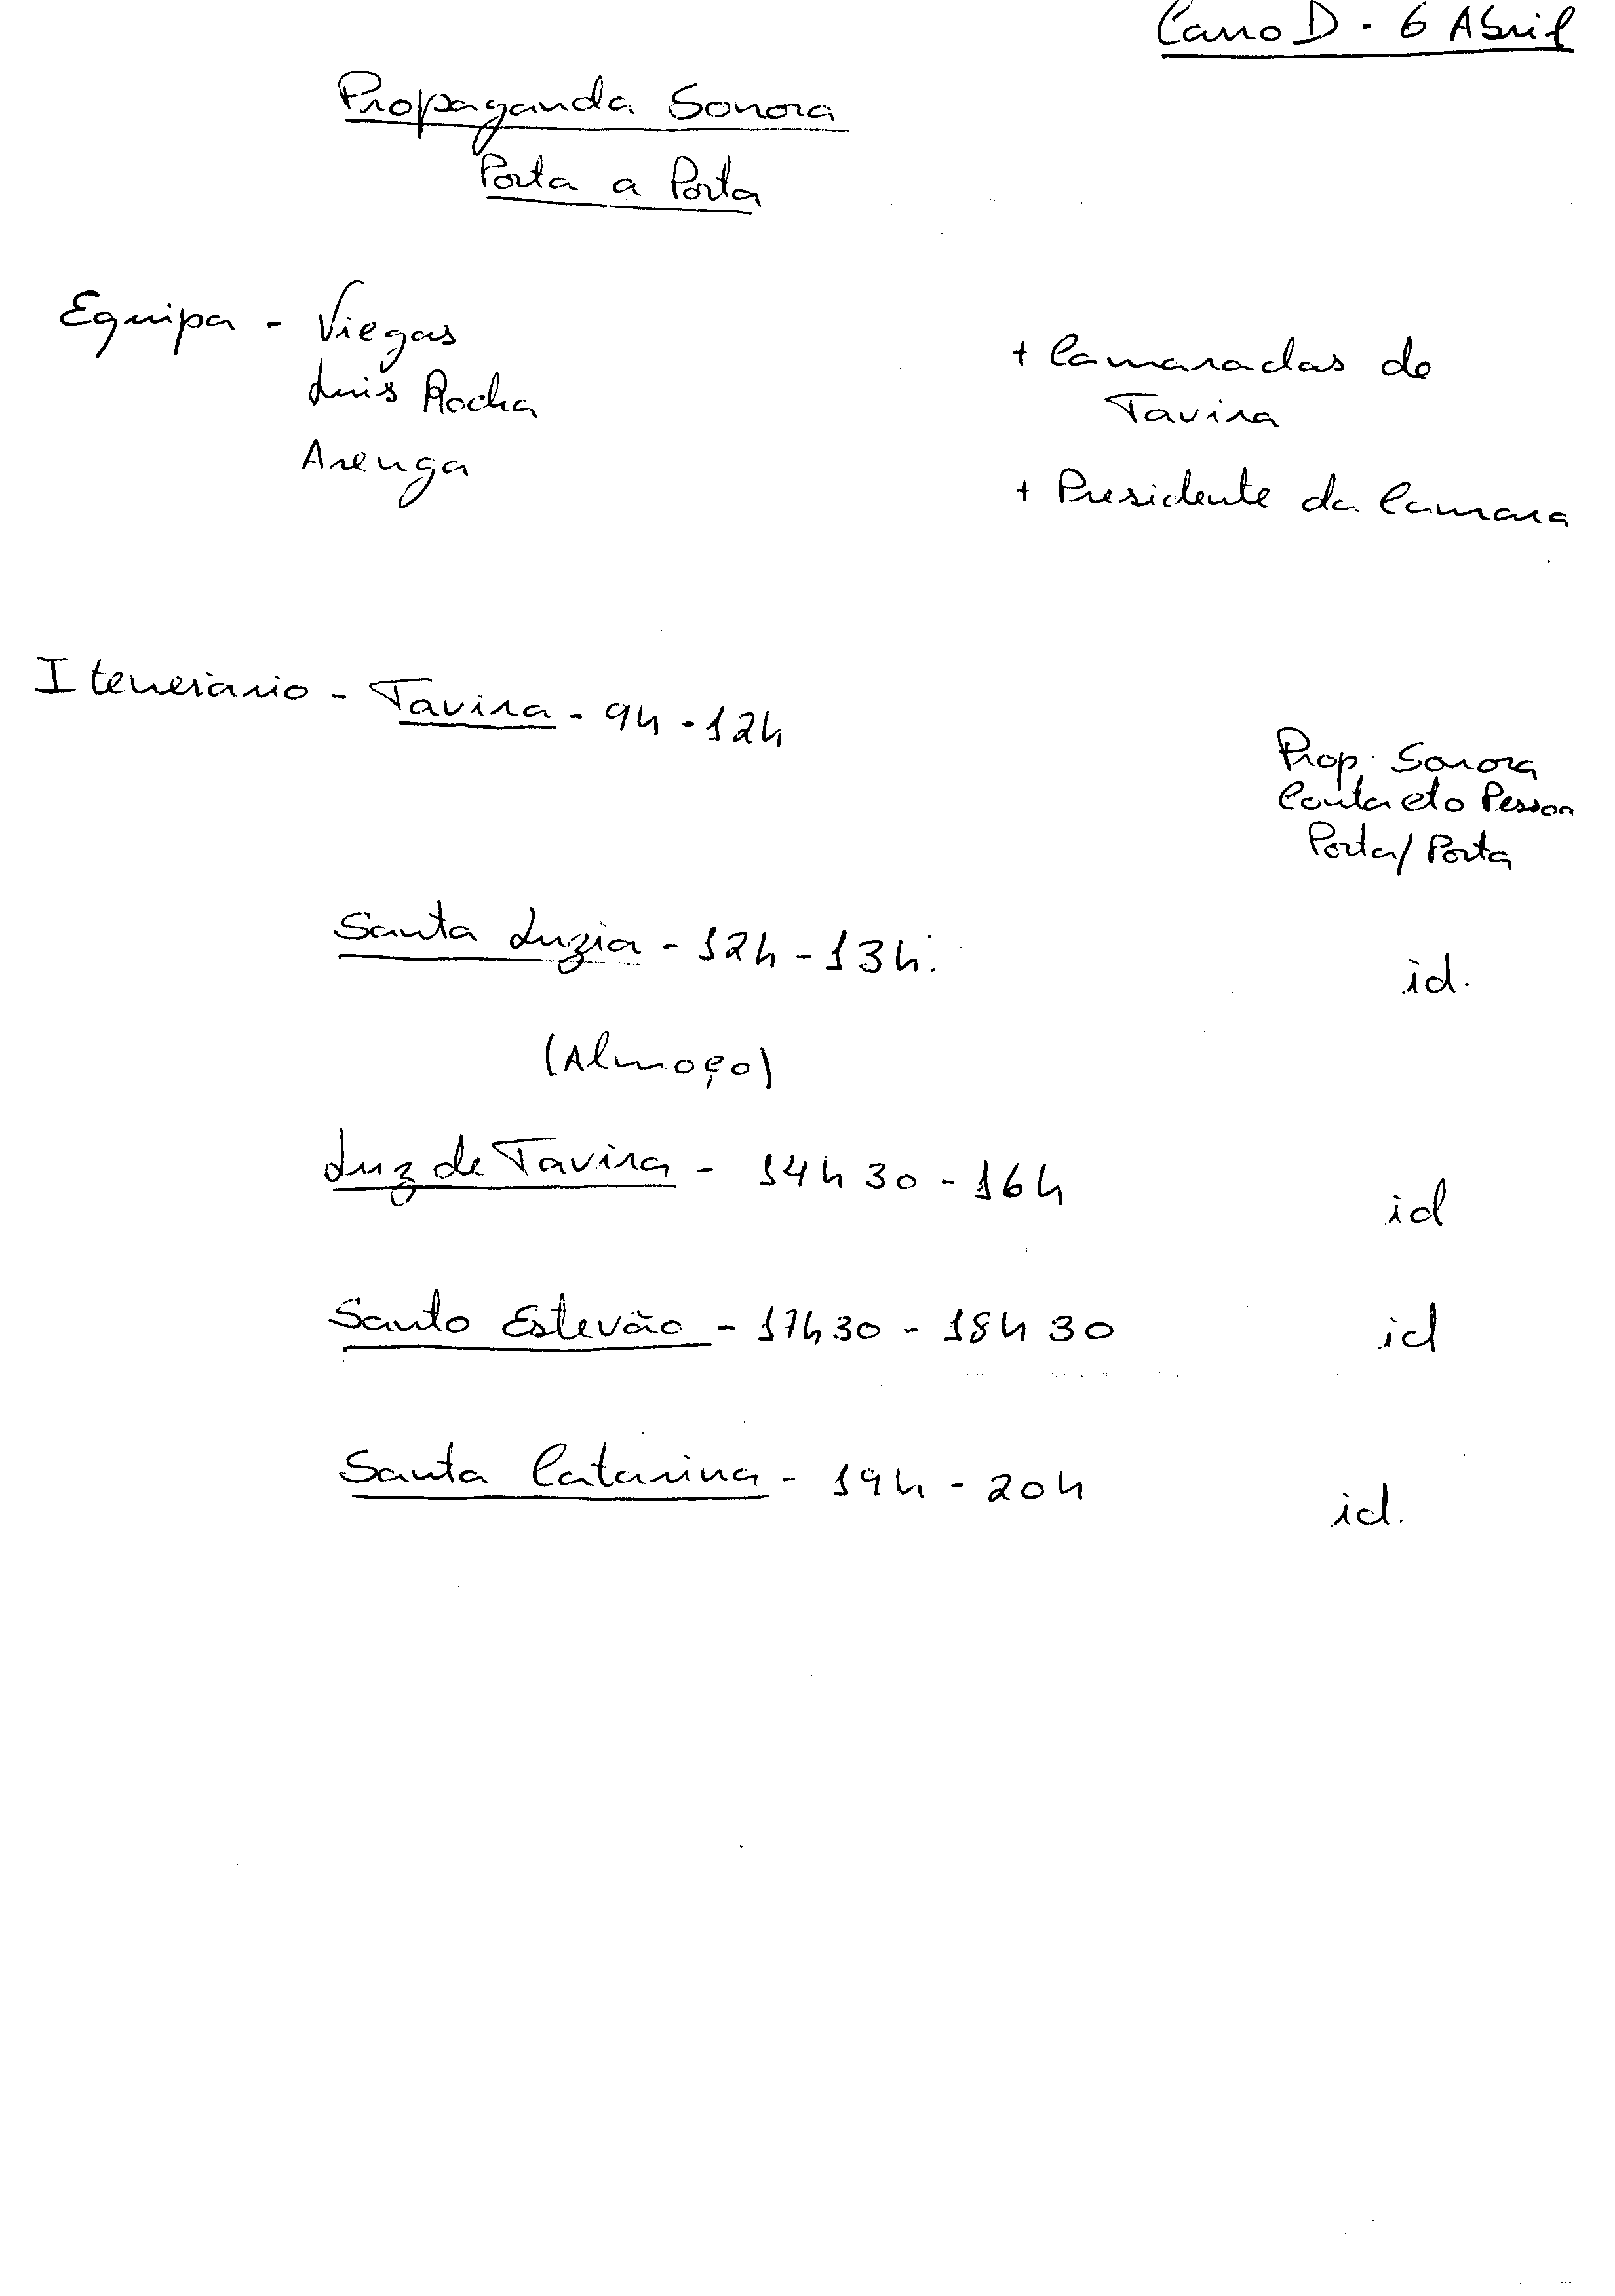 Carro D. 6 Abril
Propaganda Sonora
Porta a Porta
Equipa - Viegas
Luis Rocha
Arenga
+ Camaradas de
Tavira
+ Presidente da Camara
Itenerário - Tavira - 9h - 12h
Prop. Sonora
Contacto Pessoa
Porta/Porta
Santa Luzia - 12h - 13h. id.
(Almoço)
Luz de Tavira - 14h30 - 16h id
Santo Estevão - 17h30 - 18h30 id
Santa Catarina - 19h - 20h id.